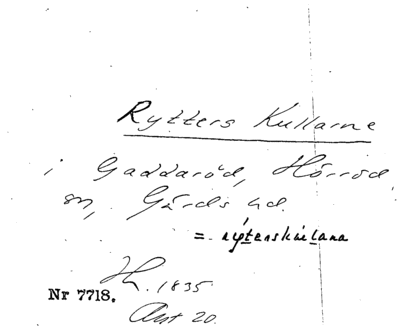 Rytters Kullarne
i Gaddaröd, Hörröd
sn, Gärds hd.
= rýterskúlana
H. 1835
Nr 7718.
Ant 20.